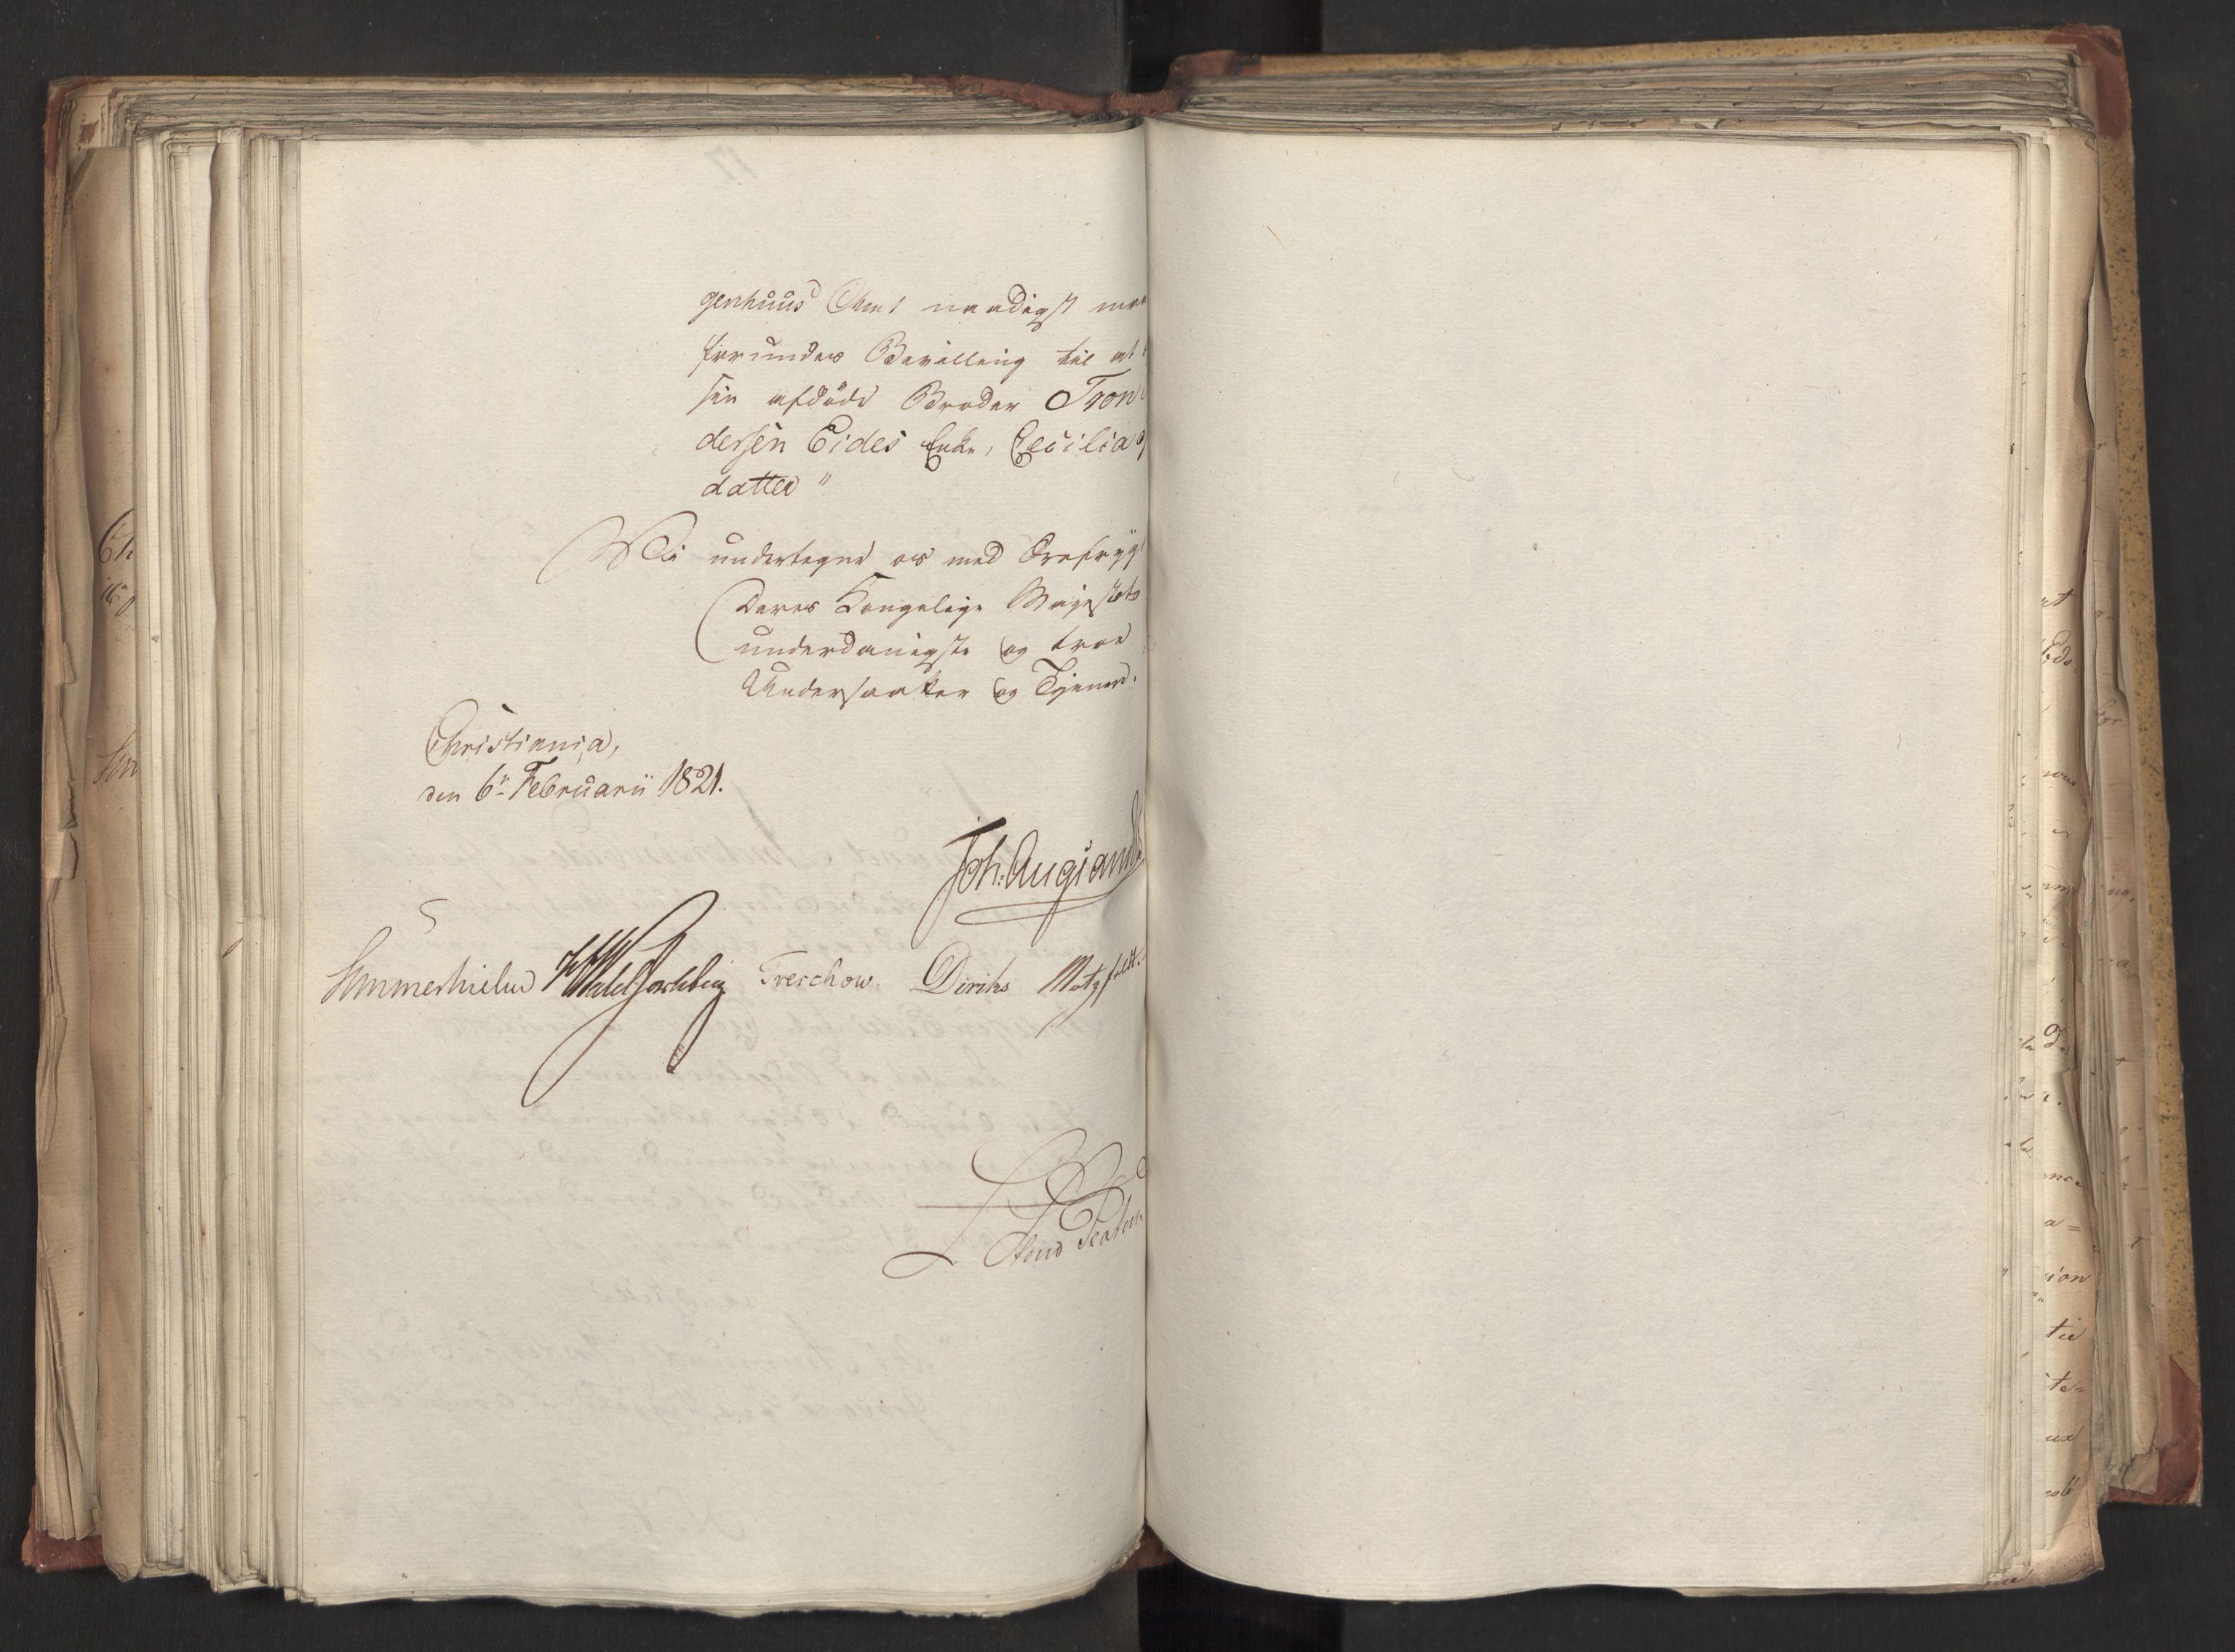 genhuus Amt naadigst maa
forundes Bevilling til at
sin afdöde Broder Tron
dersen Eides Enke, Cecilia
datter "
Vi undertegne os med Ærefrygt
Deres Kongelige Majestæts
underdanigste og troe
Undersaatter og Tjenere.
Christiania,
den 6te Februarii 1821.
Joh. Aug. Sandels
Sommerhielm Treschow. Diriks Motzfeldt.